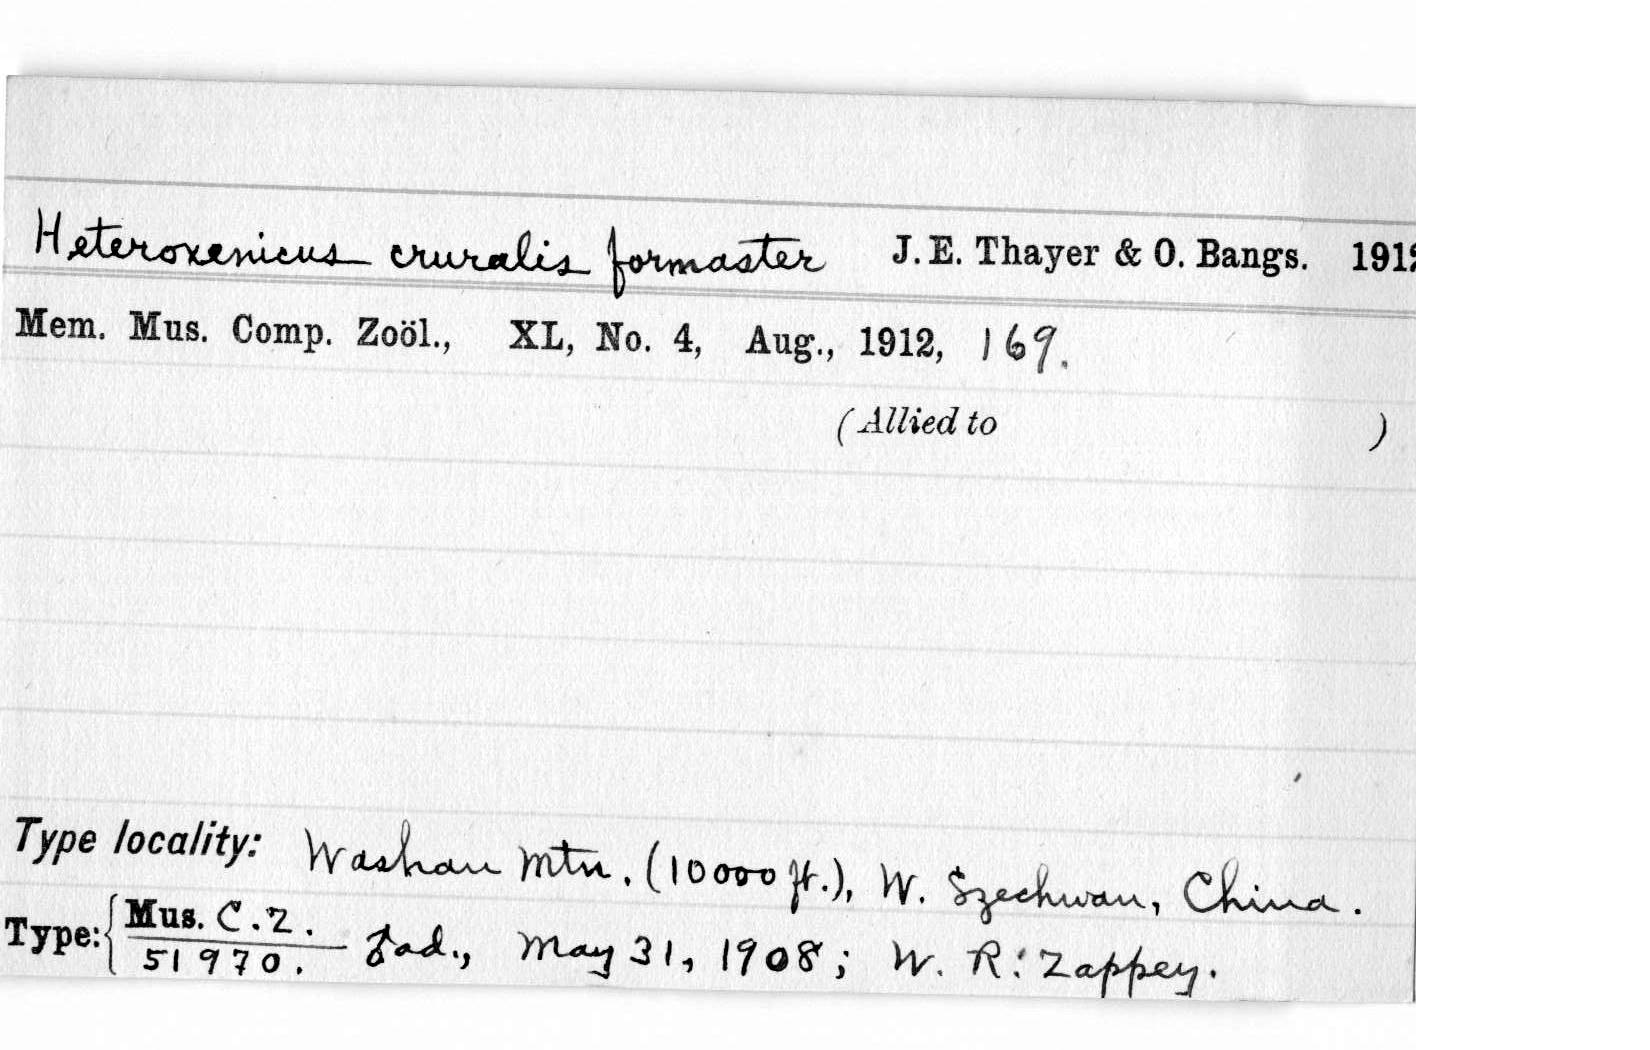 Heteroxenicus cruralis formaster J. E. Thayer & O. Bangs. 1912
Mem. Mus. Comp. Zoöl., XL, No. 4, Aug., 1912, 169.
(Allied to )
Type locality: Washan Mtn. (10000 ft.), W. Szechwan, China.
Type: Mus. C. Z. ♂ad., May 31, 1908; W. R. Zappey.
51970.